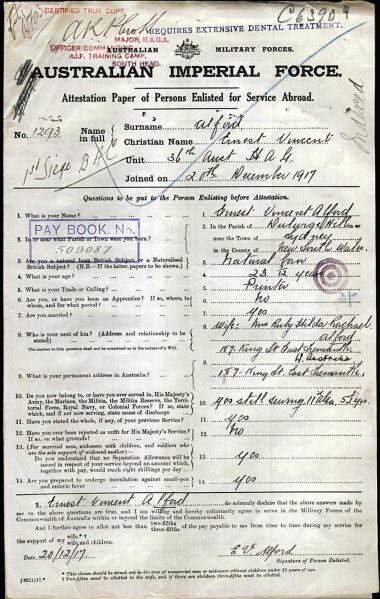 CERTIFIED TRUE COPY.
REQUIRES EXTENSIVE DENTAL TREATMENT.
C63909
MAJOR, R.A.G.A.
OFFICER COMMANDING
A.I.F. TRAINING CAMP,
SOUTH HEAD.
AUSTRALIAN MILITARY FORCES.
AUSTRALIAN IMPERIAL FORCE.
Attestation Paper of Persons Enlisted for Service Abroad.
No. 1293
Name in full
Surname Alford
Christian Name Ernest Vincent
Unit 36th Aust H A G
Joined on 20th December 1917
1st Siege
Questions to be put to the Person Enlisting before Attestation.
1. What is your Name?
1. Ernest Vincent Alford
PAY BOOK. No.
509087
2. In or near what Parish or Town were you born?
2. In the Parish of
near the Town of Sydney
in the County of New South Wales
3. Are you a natural born British Subject or a Naturalised
British Subject? (N.B.—If the latter, papers to be shown.)
3. Natural Born
4. What is your age?
4. 23 years
5. What is your Trade or Calling?
5. Printer
6. Are you, or have you been an Apprentice? If so, where, to
whom, and for what period?
6. No
7. Are you married?
7. yes
8. Who is your next of kin? (Address and relationship to be
stated)
8. Wife: Mrs Ruby Hilda Rachael
Alford
187 King St East Fremantle
W. Australia
9. What is your permanent address in Australia?
9. 187 King St East Fremantle
10. Do you now belong to, or have you ever served in, His Majesty's
Army, the Marines, the Militia, the Militia Reserve, the Terri-
torial Force, Royal Navy, or Colonial Forces? If so, state
which, and if not now serving, state cause of discharge
10. yes still serving
11. Have you stated the whole, if any, of your previous Service?
11. yes
12. Have you ever been rejected as unfit for His Majesty's Service?
If so, on what grounds?
12. No
13. (For married men, widowers with children, and soldiers who
are the sole support of widowed mother)—
Do you understand that no Separation Allowance will be
issued in respect of your service beyond an amount which,
together with pay, would reach eight shillings per day
13. yes
14. Are you prepared to undergo inoculation against small-pox
and enteric fever
14. yes
I, Ernest Vincent Alford do solemnly declare that the above answers made by
me to the above questions are true, and I am willing and hereby voluntarily agree to serve in the Military Forces of the
Commonwealth of Australia within or beyond the limits of the Commonwealth.
And I further agree to allot not less than two-fifths
three-fifths of the pay payable to me from time to time during my service for
the support of my wife.*
wife and children.
Date 20/12/17
E V Alford
Signature of Person Enlisted.